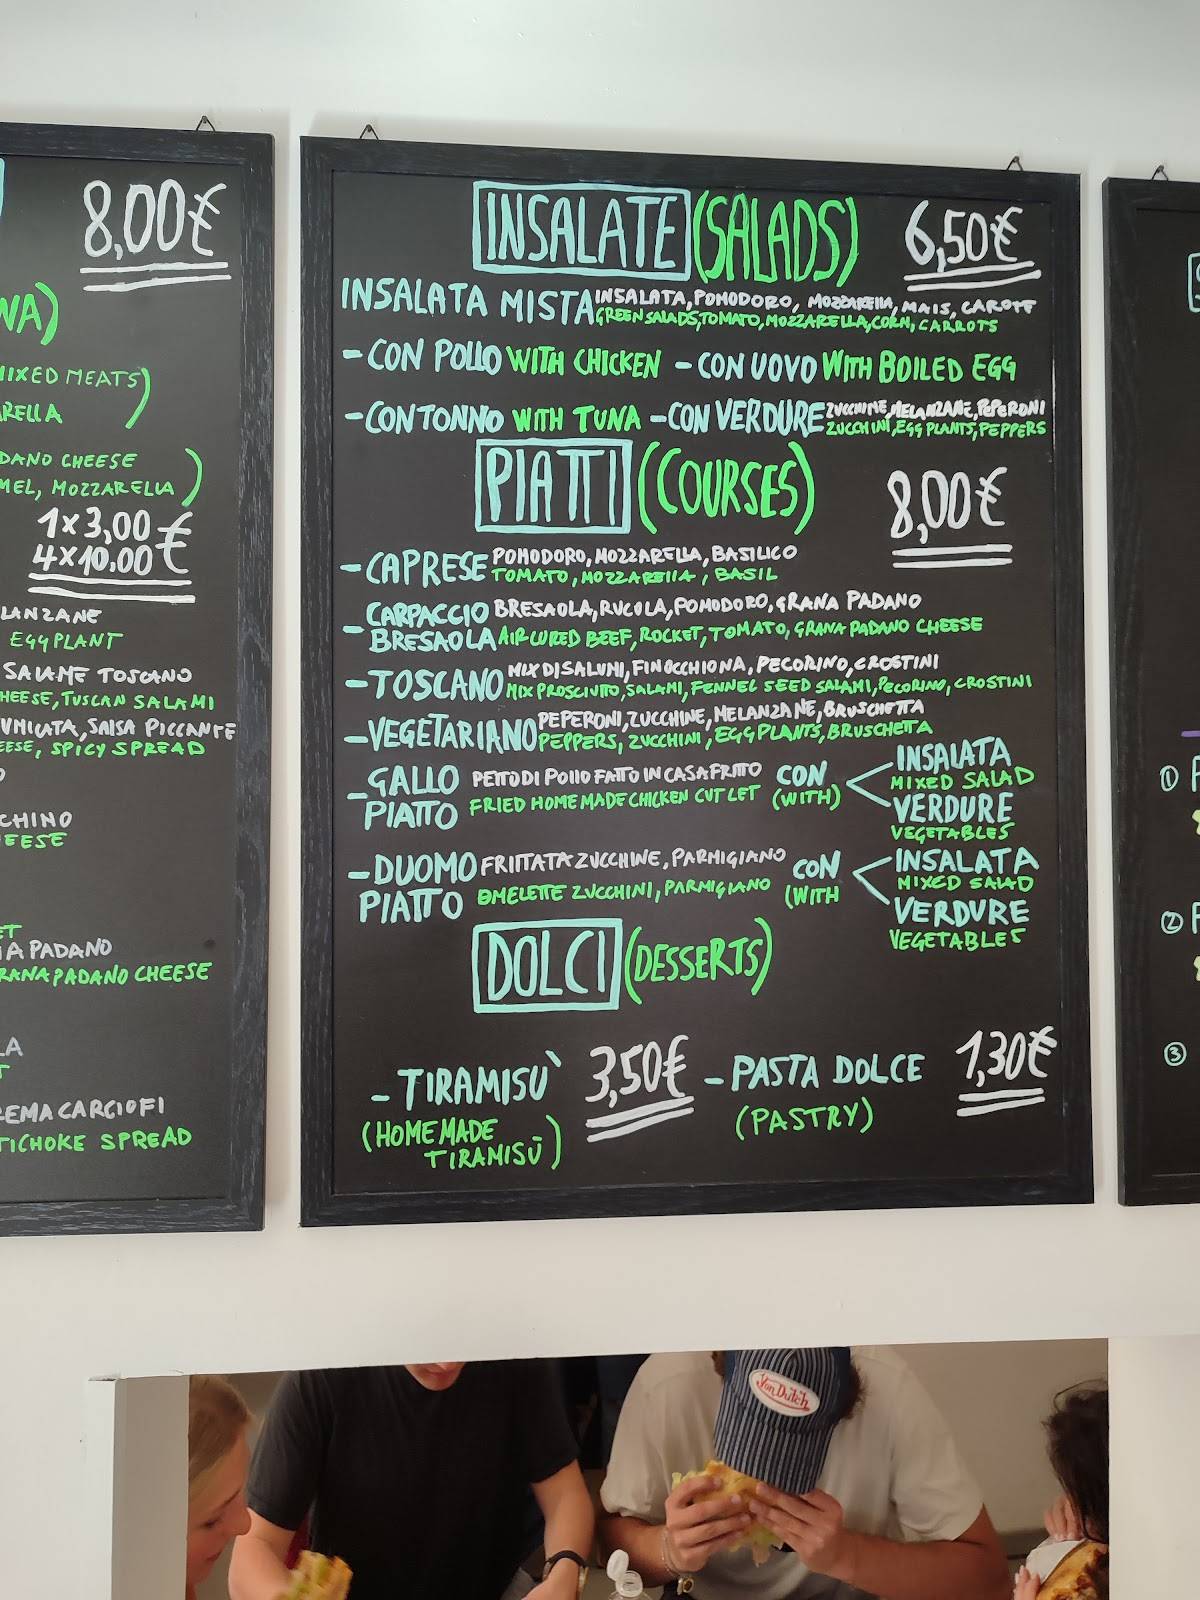 8,00€
MIXED MEATS)
1x3,00 €
4x10.00
EGGPLANT
SALAME TOSCANO
TUSCAN SALAMI
SALSA PICCANTE
SPICY SPREAD
PADANO
GRANAPADANO CHEESE
CREMA CARCIOFI
SPREAD
INSALATE (SALADS) 6,50€
INSALATA MISTA INSALATA, POMODORO, MOZZARELLA, MAIS, CAROTE
GREEN SALADS, TOMATO, MOZZARELLA, CORN, CARROTS
- CON POLLO WITH CHICKEN - CON UOVO WITH BOILED EGG
- CON TONNO WITH TUNA - CON VERDURE ZUCCHINE, MELANZANE, PEPERONI
ZUCCHINI, EGG PLANTS, PEPPERS
PIATTI (COURSES) 8,00€
- CAPRESE POMODORO, MOZZARELLA, BASILICO
TOMATO, MOZZARELLA, BASIL
- CARPACCIO BRESAOLA, RUCOLA, POMODORO, GRANA PADANO
BRESAOLA AIR CURED BEEF, ROCKET, TOMATO, GRANA PADANO CHEESE
- TOSCANO MIX DI SALUMI, FINOCCHIONA, PECORINO, CROSTINI
MIX PROSCIUTTO, SALAMI, FENNEL SEED SALAMI, PECORINO, CROSTINI
- VEGETARIANO PEPERONI, ZUCCHINE, MELANZANE, BRUSCHETTA
PEPPERS, ZUCCHINI, EGGPLANTS, BRUSCHETTA
- GALLO PIATTO PETTO DI POLLO FATTO IN CASA FRITTO CON INSALATA
FRIED HOMEMADE CHICKEN CUTLET (WITH) MIXED SALAD
VERDURE
VEGETABLES
- DUOMO PIATTO FRITTATA ZUCCHINE, PARMIGIANO CON INSALATA
OMELETTE ZUCCHINI, PARMIGIANO (WITH MIXED SALAD
VERDURE
VEGETABLES
DOLCI (DESSERTS)
- TIRAMISÙ 3,50€ - PASTA DOLCE 1,30€
(HOMEMADE TIRAMISÙ) (PASTRY)
①
②
③
Von Dutch